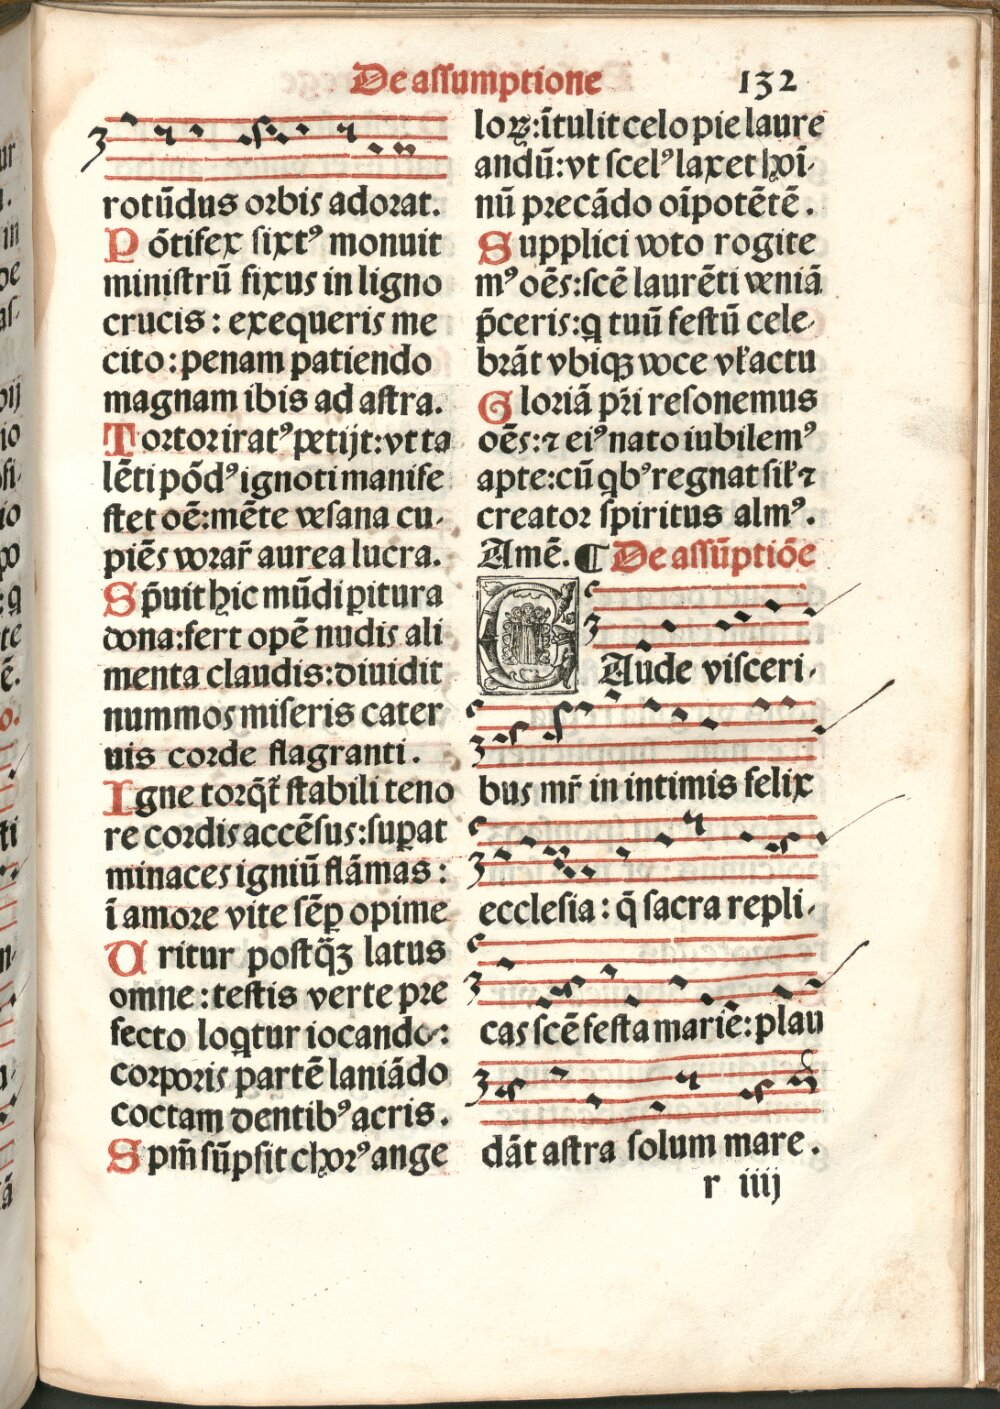 De assumptione 132
rotūdus orbis adorat.
Pōtifex sixtꝰ monuit
ministrū fixus in ligno
crucis: exequeris me
cito: penam patiendo
magnam ibis ad astra.
Tortor iratꝰ petijt: vt ta
lēti pōdꝰ ignoti manife
stet oē: mēte vesana cu-
piēs vorar̄ aurea lucra.
Sp̄uit hic mūdi pitura
dona: fert opē nudis ali
menta claudis: diuidit
nummos miseris cater
uis corde flagranti.
Igne torq̄t stabili teno
re cordis accēsus: suꝑat
minaces igniū flāmas:
ī amore vite sēꝑ opime
Uritur postq̄ꝫ latus
omne: testis verte pre
fecto loqtur iocando:
corporis partē laniādo
coctam dentibꝰ acris.
Spm̄ sūpsit chorꝰ ange
loꝝ: ītulit celo pie laure
andū: vt scelꝰ laxet hoī-
nū precādo oīpotētē.
Supplici voto rogite
mꝰ oēs: scē laurēti veniā
p̄ceris: q tuū festū cele-
brāt vbiqꝫ voce vl̓ actu
Gloriā pr̄i resonemus
oēs: ⁊ eiꝰ nato iubilemꝰ
apte: cū qbꝰ regnat sil̓ ⁊
creator spiritus almꝰ.
Amē. ¶ De assūptiōe
GAude visceri-
bus mr̄ in intimis felix
ecclesia: q̄ sacra repli-
cas scē festa marie: plau
dāt astra solum mare.
r iiij